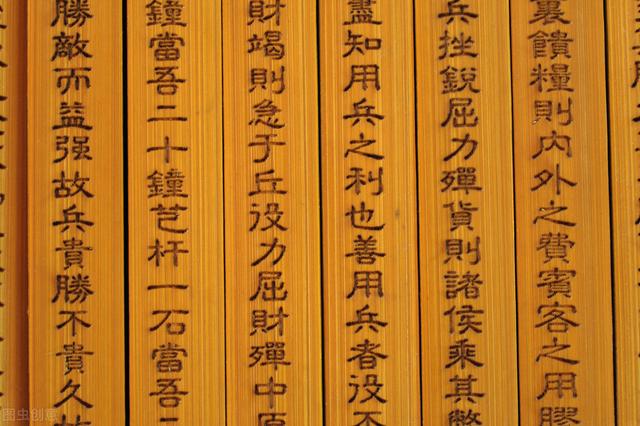 裏饋糧則內外之費賓客之用膠
兵挫銳屈力殫貨則諸侯乘其弊
盡知用兵之利也善用兵者役不
財竭則急于丘役力屈財殫中原
鐘當吾二十鐘芑杆一石當吾二
勝敵而益强故兵貴勝不貴久故
图虫创意